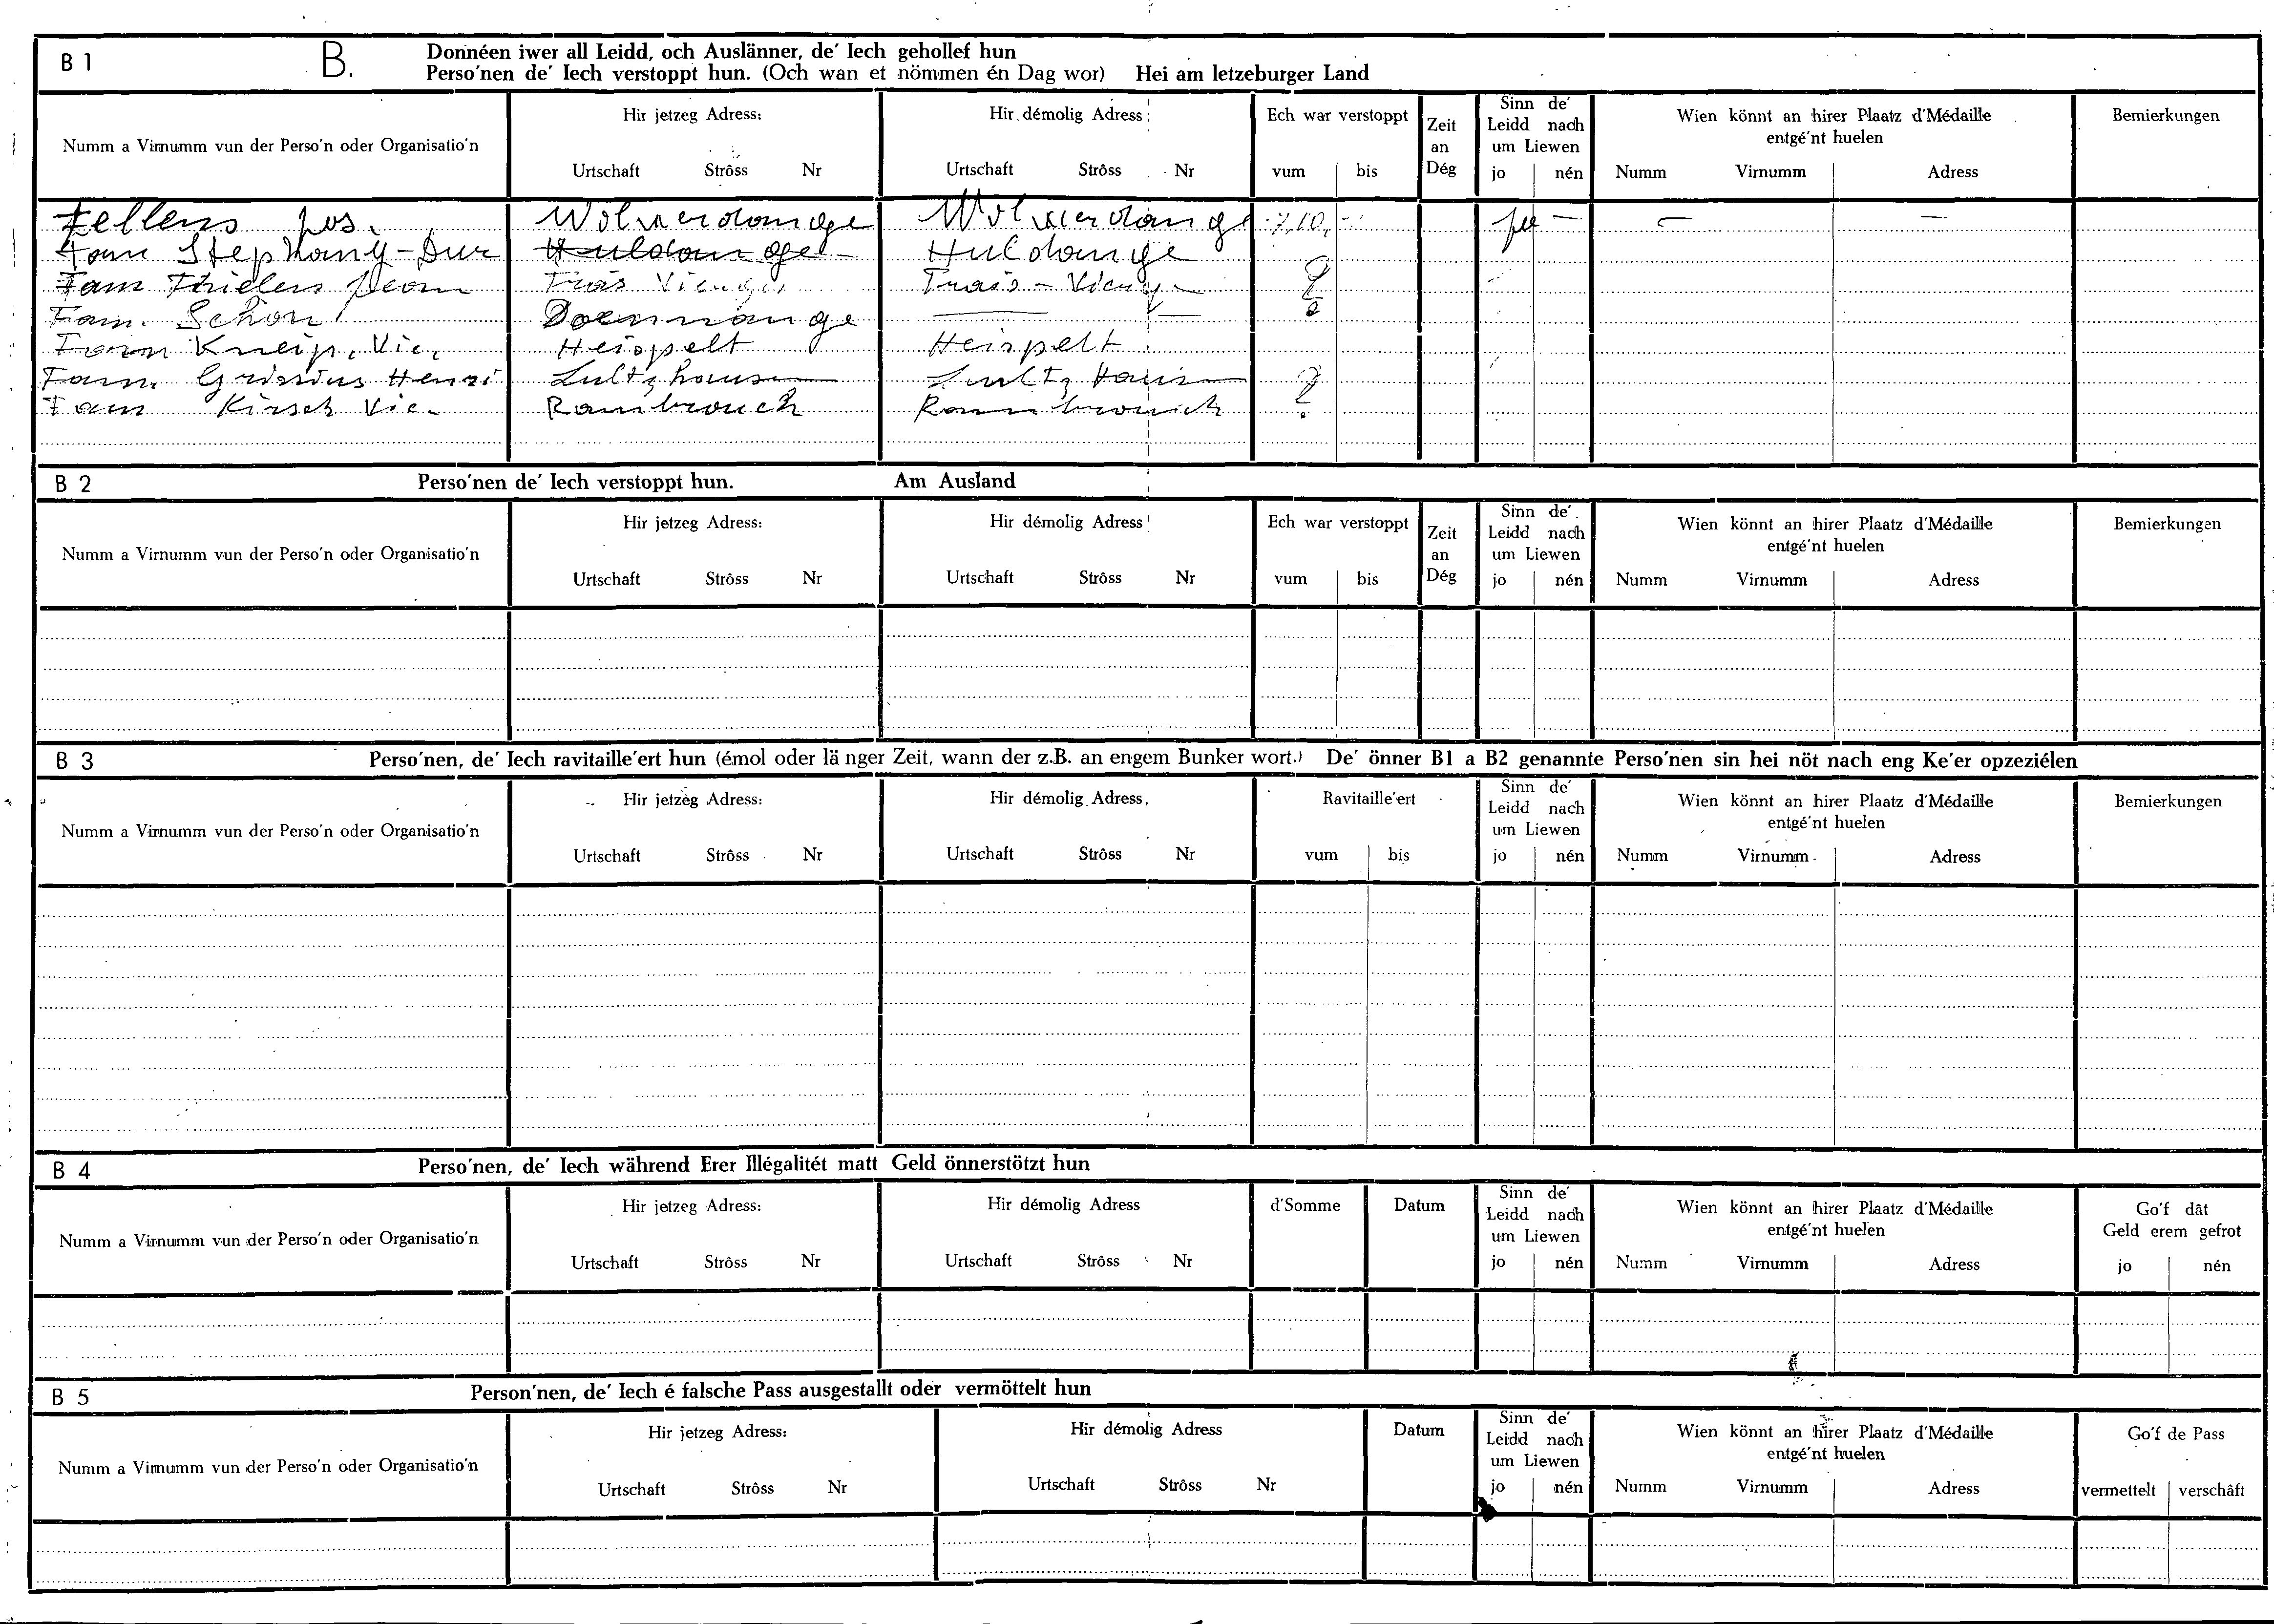 B 1 B. Donnéen iwer all Leidd, och Auslänner, de' Iech gehollef hun
Perso'nen de' Iech verstoppt hun. (Och wan et nömmen én Dag wor) Hei am letzeburger Land
Numm a Virnumm vun der Perso'n oder Organisatio'n
Hir jetzeg Adress:
Urtschaft Strôss Nr
Hir démolig Adress
Urtschaft Strôss Nr
Ech war verstoppt
vum bis
Zeit
an
Dég
Sinn de'
Leidd nach
um Liewen
jo nén
Wien könnt an hirer Plaatz d'Médaille
entgé'nt huelen
Numm Virnumm Adress
Bemierkungen
Fellens Jos. Wolwerdange Wolwerdange 7.10. - jo - - -
Fam Stephany-Dur Huldange Huldange
Fam Thielen Trois Vierges Trois-Vierges ?
Fam. Schon Doennange
Fam Kneip. Vic. Heispelt Heispelt
Fam. Henri Lultzhausen Lultzhausen ?
Fam Kirsch Vic. Rambrouch Rambrouch
B 2 Perso'nen de' Iech verstoppt hun. Am Ausland
Numm a Virnumm vun der Perso'n oder Organisatio'n
Hir jetzeg Adress:
Urtschaft Strôss Nr
Hir démolig Adress
Urtschaft Strôss Nr
Ech war verstoppt
vum bis
Zeit
an
Dég
Sinn de'
Leidd nach
um Liewen
jo nén
Wien könnt an hirer Plaatz d'Médaille
entgé'nt huelen
Numm Virnumm Adress
Bemierkungen
B 3 Perso'nen, de' Iech ravitaille'ert hun (émol oder länger Zeit, wann der z.B. an engem Bunker wort.) De' önner B1 a B2 genannte Perso'nen sin hei nöt nach eng Ke'er opzeziélen
Numm a Virnumm vun der Perso'n oder Organisatio'n
Hir jetzeg Adress:
Urtschaft Strôss Nr
Hir démolig Adress
Urtschaft Strôss Nr
Ravitaille'ert
vum bis
Sinn de'
Leidd nach
um Liewen
jo nén
Wien könnt an hirer Plaatz d'Médaille
entgé'nt huelen
Numm Virnumm Adress
Bemierkungen
B 4 Perso'nen, de' Iech während Erer Illégalitét matt Geld önnerstötzt hun
Numm a Virnumm vun der Perso'n oder Organisatio'n
Hir jetzeg Adress:
Urtschaft Strôss Nr
Hir démolig Adress
Urtschaft Strôss Nr
d'Somme
Datum
Sinn de'
Leidd nach
um Liewen
jo nén
Wien könnt an hirer Plaatz d'Médaille
entgé'nt huelen
Numm Virnumm Adress
Go'f dât
Geld erem gefrot
jo nén
B 5 Person'nen, de' Iech é falsche Pass ausgestallt oder vermöttelt hun
Numm a Virnumm vun der Perso'n oder Organisatio'n
Hir jetzeg Adress:
Urtschaft Strôss Nr
Hir démolig Adress
Urtschaft Strôss Nr
Datum
Sinn de'
Leidd nach
um Liewen
jo nén
Wien könnt an hirer Plaatz d'Médaille
entgé'nt huelen
Numm Virnumm Adress
Go'f de Pass
vermettelt verschâft